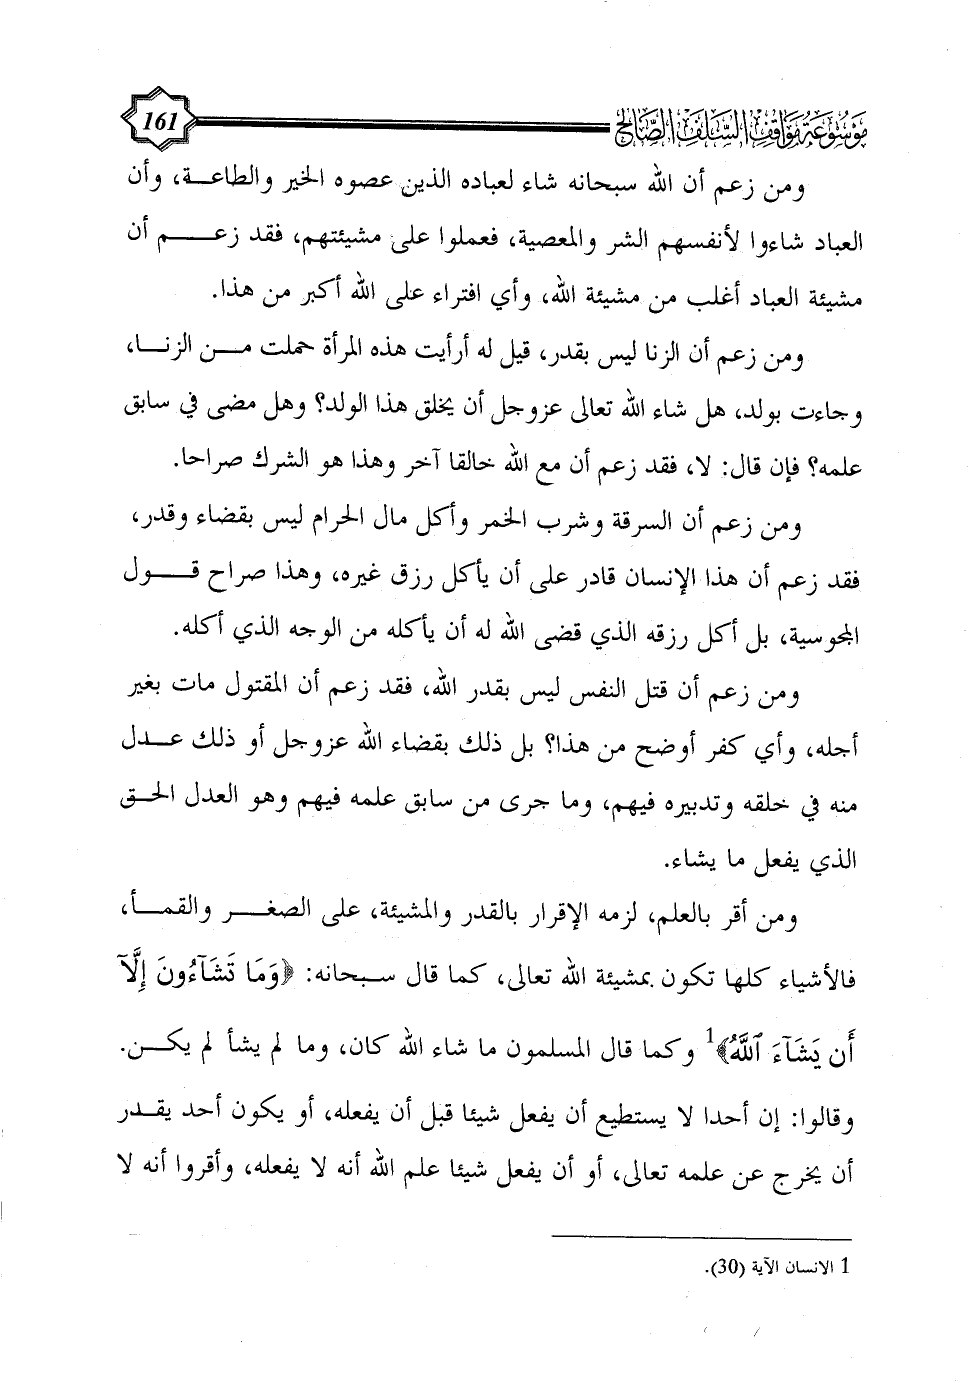 موسوعة مواقف السلف الصالح 161
ومن زعم أن الله سبحانه شاء لعباده الذين عصوه الخير والطاعة، وأن
العباد شاءوا لأنفسهم الشر والمعصية، فعملوا على مشيئتهم، فقد زعم أن
مشيئة العباد أغلب من مشيئة الله، وأي افتراء على الله أكبر من هذا.
ومن زعم أن الزنا ليس بقدر، قيل له أرأيت هذه المرأة حملت من الزنا،
وجاءت بولد، هل شاء الله تعالى عزوجل أن يخلق هذا الولد؟ وهل مضى في سابق
علمه؟ فإن قال: لا، فقد زعم أن مع الله خالقا آخر وهذا هو الشرك صراحا.
ومن زعم أن السرقة وشرب الخمر وأكل مال الحرام ليس بقضاء وقدر،
فقد زعم أن هذا الإنسان قادر على أن يأكل رزق غيره، وهذا صراح قول
المجوسية، بل أكل رزقه الذي قضى الله له أن يأكله من الوجه الذي أكله.
ومن زعم أن قتل النفس ليس بقدر الله، فقد زعم أن المقتول مات بغير
أجله، وأي كفر أوضح من هذا؟ بل ذلك بقضاء الله عزوجل أو ذلك عدل
منه في خلقه وتدبيره فيهم، وما جرى من سابق علمه فيهم وهو العدل الحق
الذي يفعل ما يشاء.
ومن أقر بالعلم، لزمه الإقرار بالقدر والمشيئة، على الصغر والقمأ،
فالأشياء كلها تكون بمشيئة الله تعالى، كما قال سبحانه: ﴿وَمَا تَشَآءُونَ إِلَّآ
أَن يَشَآءَ ٱللَّهُ﴾1 وكما قال المسلمون ما شاء الله كان، وما لم يشأ لم يكن.
وقالوا: إن أحدا لا يستطيع أن يفعل شيئا قبل أن يفعله، أو يكون أحد يقدر
أن يخرج عن علمه تعالى، أو أن يفعل شيئا علم الله أنه لا يفعله، وأقروا أنه لا
1 الانسان الآية (30).